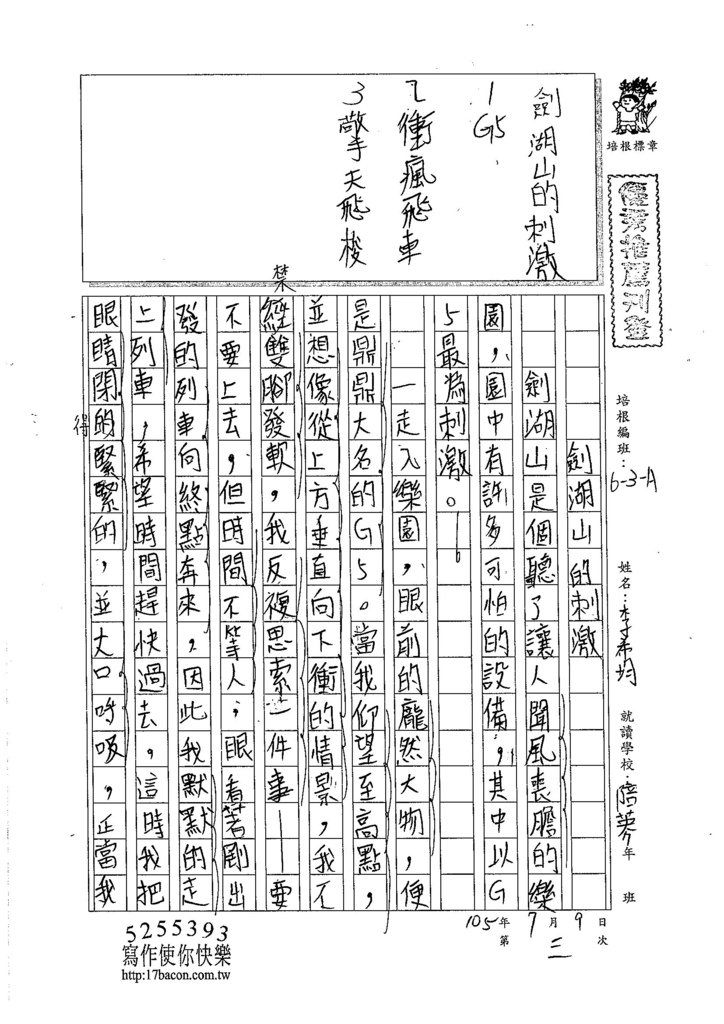 培根標章
優秀推薦刊登
劍湖山的刺激
1 G5.
2衝瘋飛車
3擎天飛梭
培根編班：6-3-A
姓名：李希均
就讀學校：
年
班
105年7月9日
第三次
劍湖山的刺激
劍湖山是個聽了讓人聞風喪膽的樂
園，園中有許多可怕的設備，其中以G
5最為刺激。
一走入樂園，眼前的龐然大物，便
是鼎鼎大名的G5。當我仰望至高點，
並想像從上方垂直向下衝的情景，我不
禁
經雙腳發軟，我反複思索一件事—要
不要上去，但時間不等人；眼看著剛出
發的列車向終點奔來，因此我默默的走
上列車，希望時間趕快過去。這時我把
眼睛閉的緊緊的，並大口呼吸，正當我
得
5255393
寫作使你快樂
http:17bacon.com.tw